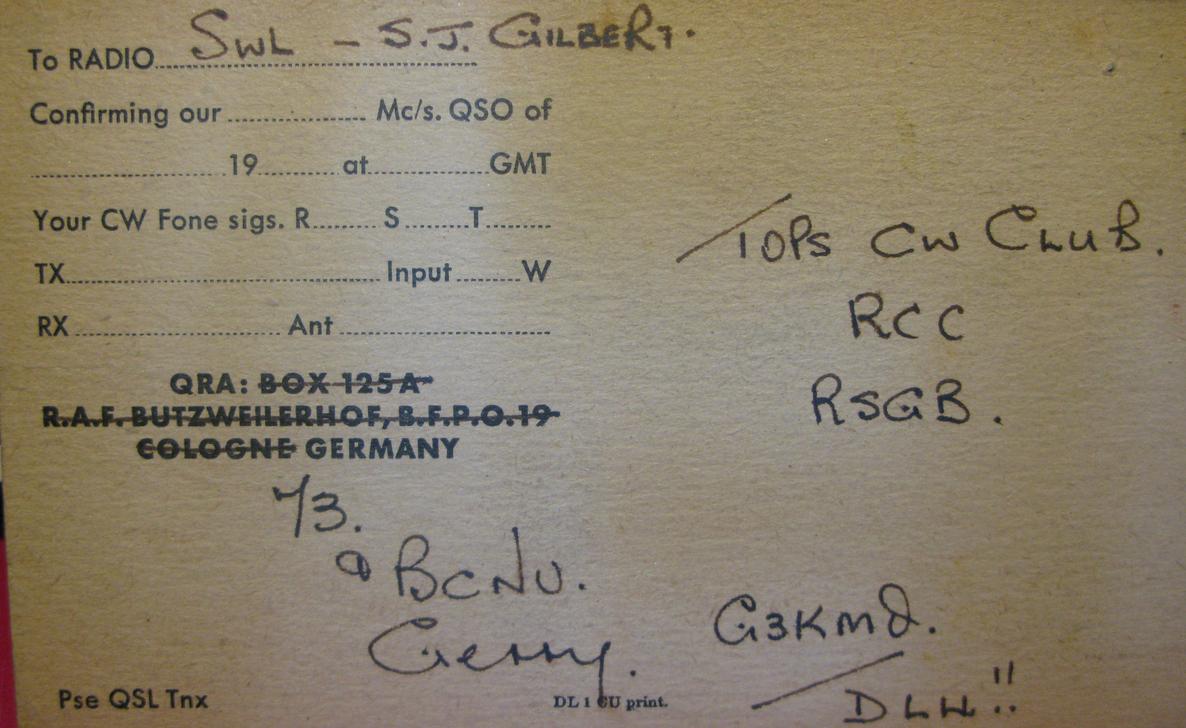 To RADIO SWL - S.J. GILBERT.
Confirming our .................. Mc/s. QSO of
.................. 19 ......... at .................. GMT
Your CW Fone sigs. R......... S......... T.........
TX.................. Input ......... W
RX .................. Ant ..................
QRA: BOX 125A
R.A.F. BUTZWEILERHOF, B.F.P.O.19
COLOGNE GERMANY
TOPS CW CLUB.
RCC
RSGB.
73.
BCNU.
Gerry.
G3KMQ.
/DL4!!
Pse QSL Tnx
DL 1 CU print.